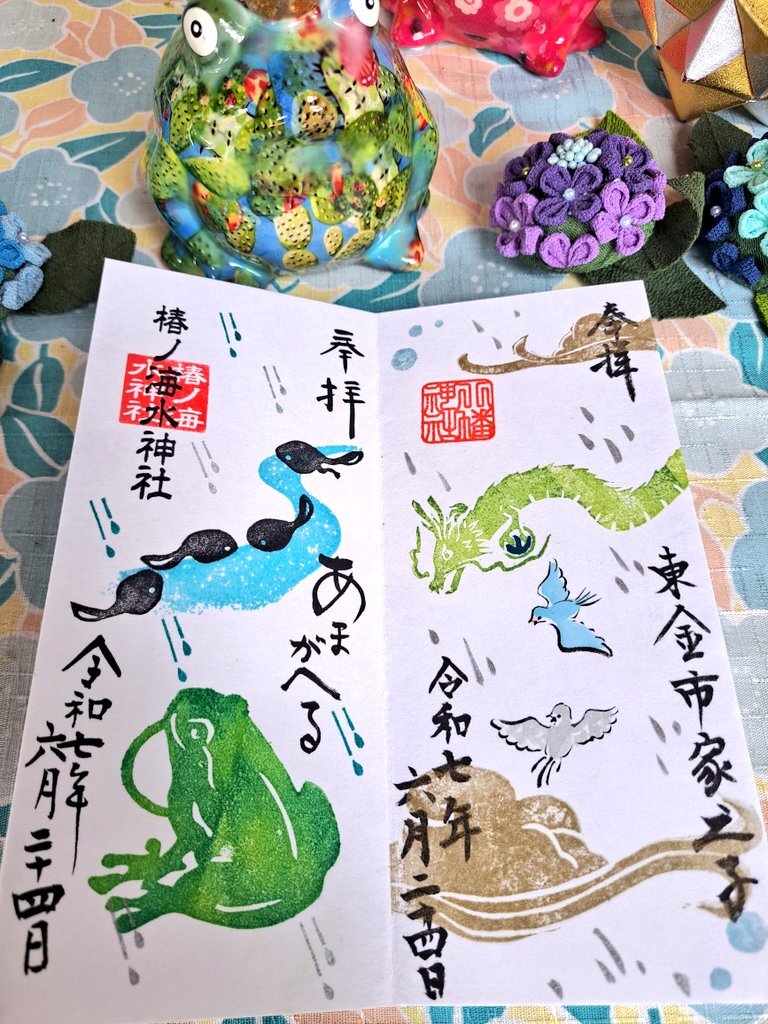 奉拝
東金市家之子
令和七年
六月二十四日
奉拝
あまがへる
椿ノ海水神社
椿ノ海
水神社
令和七年
六月二十四日